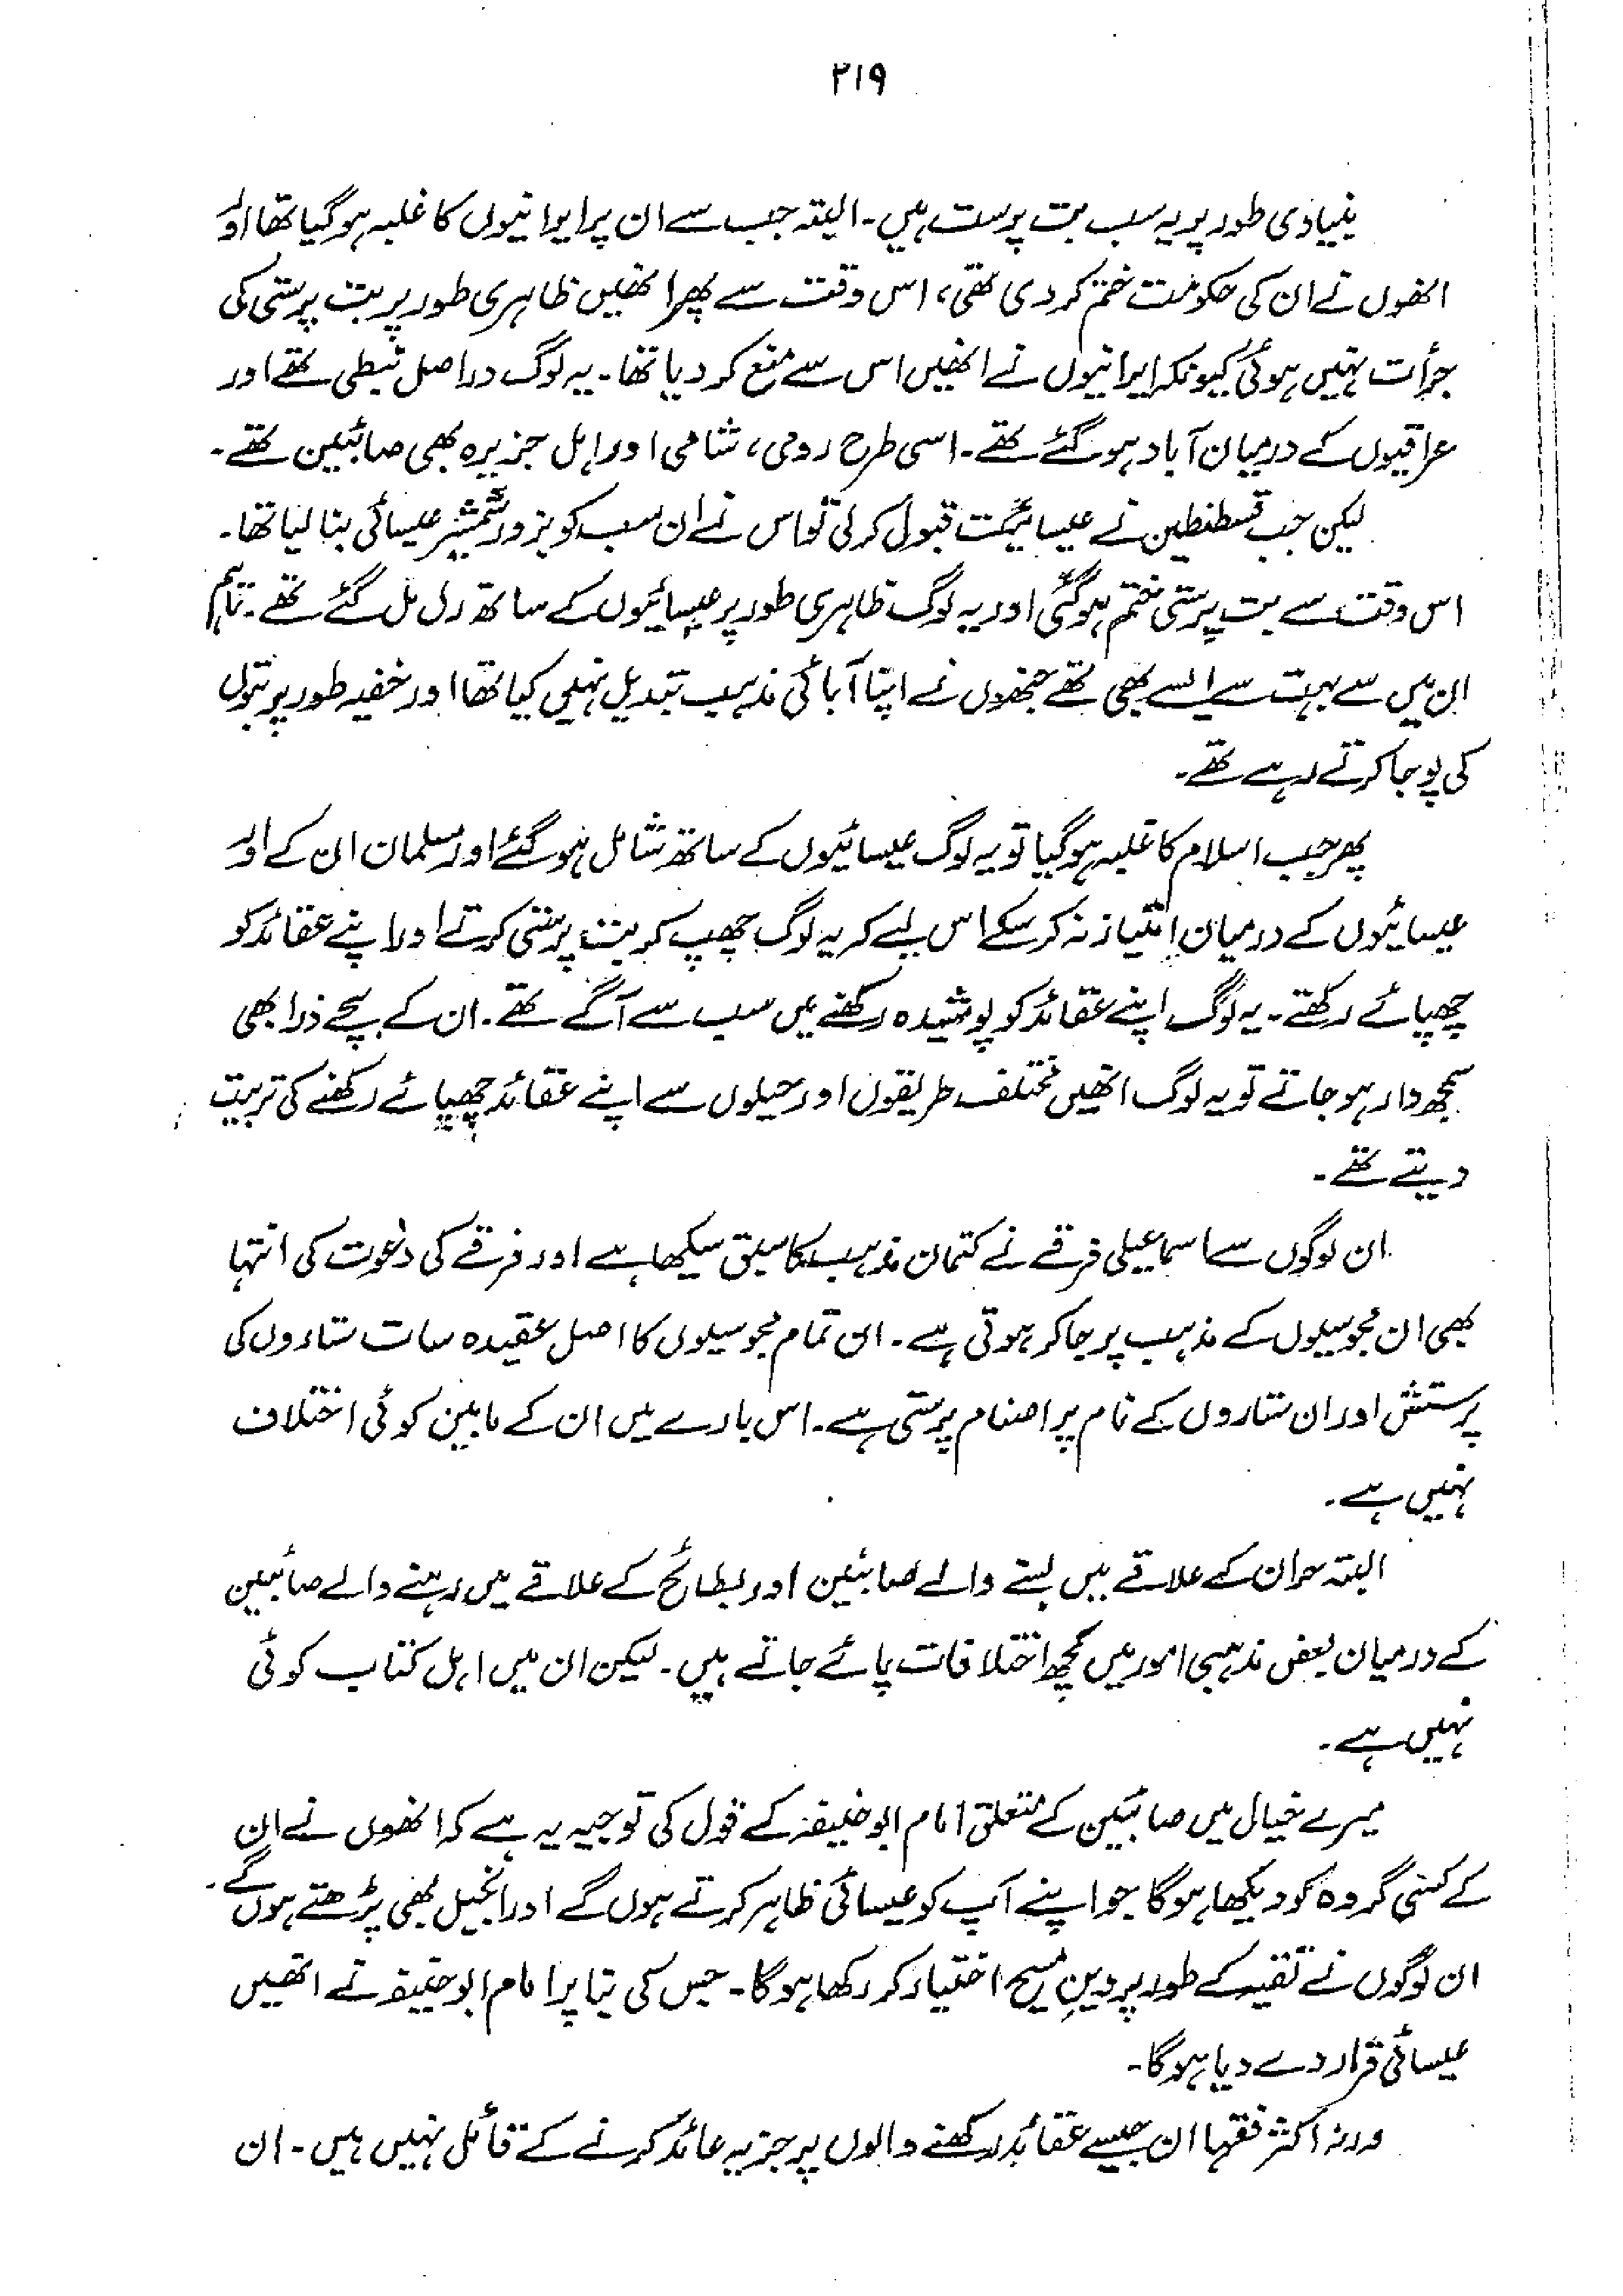 ۲۱۹
بنیادی طور پر یہ سب بت پرست ہیں۔ البتہ جب سے ان پر ایرانیوں کا غلبہ ہو گیا تھا اور
انھوں نے ان کی حکومت ختم کر دی تھی، اس وقت سے پھر انھیں ظاہری طور پر بت پرستی کی
جرأت نہیں ہوئی کیونکہ ایرانیوں نے انھیں اس سے منع کر دیا تھا۔ یہ لوگ دراصل نبطی تھے اور
عراقیوں کے درمیان آباد ہو گئے تھے۔ اسی طرح رومی، شامی اور اہل جزیرہ بھی صابئین تھے۔
لیکن جب قسطنطین نے عیسائیت قبول کر لی تو اس نے ان سب کو بزور شمشیر عیسائی بنا لیا تھا۔
اس وقت سے بت پرستی ختم ہو گئی اور یہ لوگ ظاہری طور پر عیسائیوں کے ساتھ رل مل گئے تھے۔ تاہم
ان میں سے بہت سے ایسے بھی تھے جنھوں نے اپنا آبائی مذہب تبدیل نہیں کیا تھا اور خفیہ طور پر بتوں
کی پوجا کرتے رہے تھے۔
پھر جب اسلام کا غلبہ ہو گیا تو یہ لوگ عیسائیوں کے ساتھ شامل ہو گئے اور مسلمان ان کے اور
عیسائیوں کے درمیان امتیاز نہ کر سکے اس لیے کہ یہ لوگ چھپ کر بت پرستی کرتے اور اپنے عقائد کو
چھپائے رکھتے۔ یہ لوگ اپنے عقائد کو پوشیدہ رکھنے میں سب سے آگے تھے۔ ان کے بچے ذرا بھی
سمجھ دار ہو جاتے تو یہ لوگ انھیں مختلف طریقوں اور حیلوں سے اپنے عقائد چھپائے رکھنے کی تربیت
دیتے تھے۔
ان لوگوں سے اسماعیلی فرقے نے کتمان مذہب کا سبق سیکھا ہے اور فرقے کی دعوت کی انتہا
بھی ان مجوسیوں کے مذہب پر جا کر ہوتی ہے۔ ان تمام مجوسیوں کا اصل عقیدہ سات ستاروں کی
پرستش اور ان ستاروں کے نام پر اصنام پرستی ہے۔ اس بارے میں ان کے مابین کوئی اختلاف
نہیں ہے۔
البتہ حران کے علاقے میں بسنے والے صابئین اور بطائح کے علاقے میں رہنے والے صابئین
کے درمیان بعض مذہبی امور میں کچھ اختلافات پائے جاتے ہیں۔ لیکن ان میں اہل کتاب کوئی
نہیں ہے۔
میرے خیال میں صابئین کے متعلق امام ابو حنیفہ کے قول کی توجیہ یہ ہے کہ انھوں نے ان
کے کسی گروہ کو دیکھا ہوگا جو اپنے آپ کو عیسائی ظاہر کرتے ہوں گے اور انجیل بھی پڑھتے ہوں گے۔
ان لوگوں نے تقیہ کے طور پر دینِ مسیح اختیار کر رکھا ہوگا۔ جس کی بنا پر امام ابو حنیفہ نے انھیں
عیسائی قرار دے دیا ہوگا۔
ورنہ اکثر فقہا ان جیسے عقائد رکھنے والوں پر جزیہ عائد کرنے کے قائل نہیں ہیں۔ ان